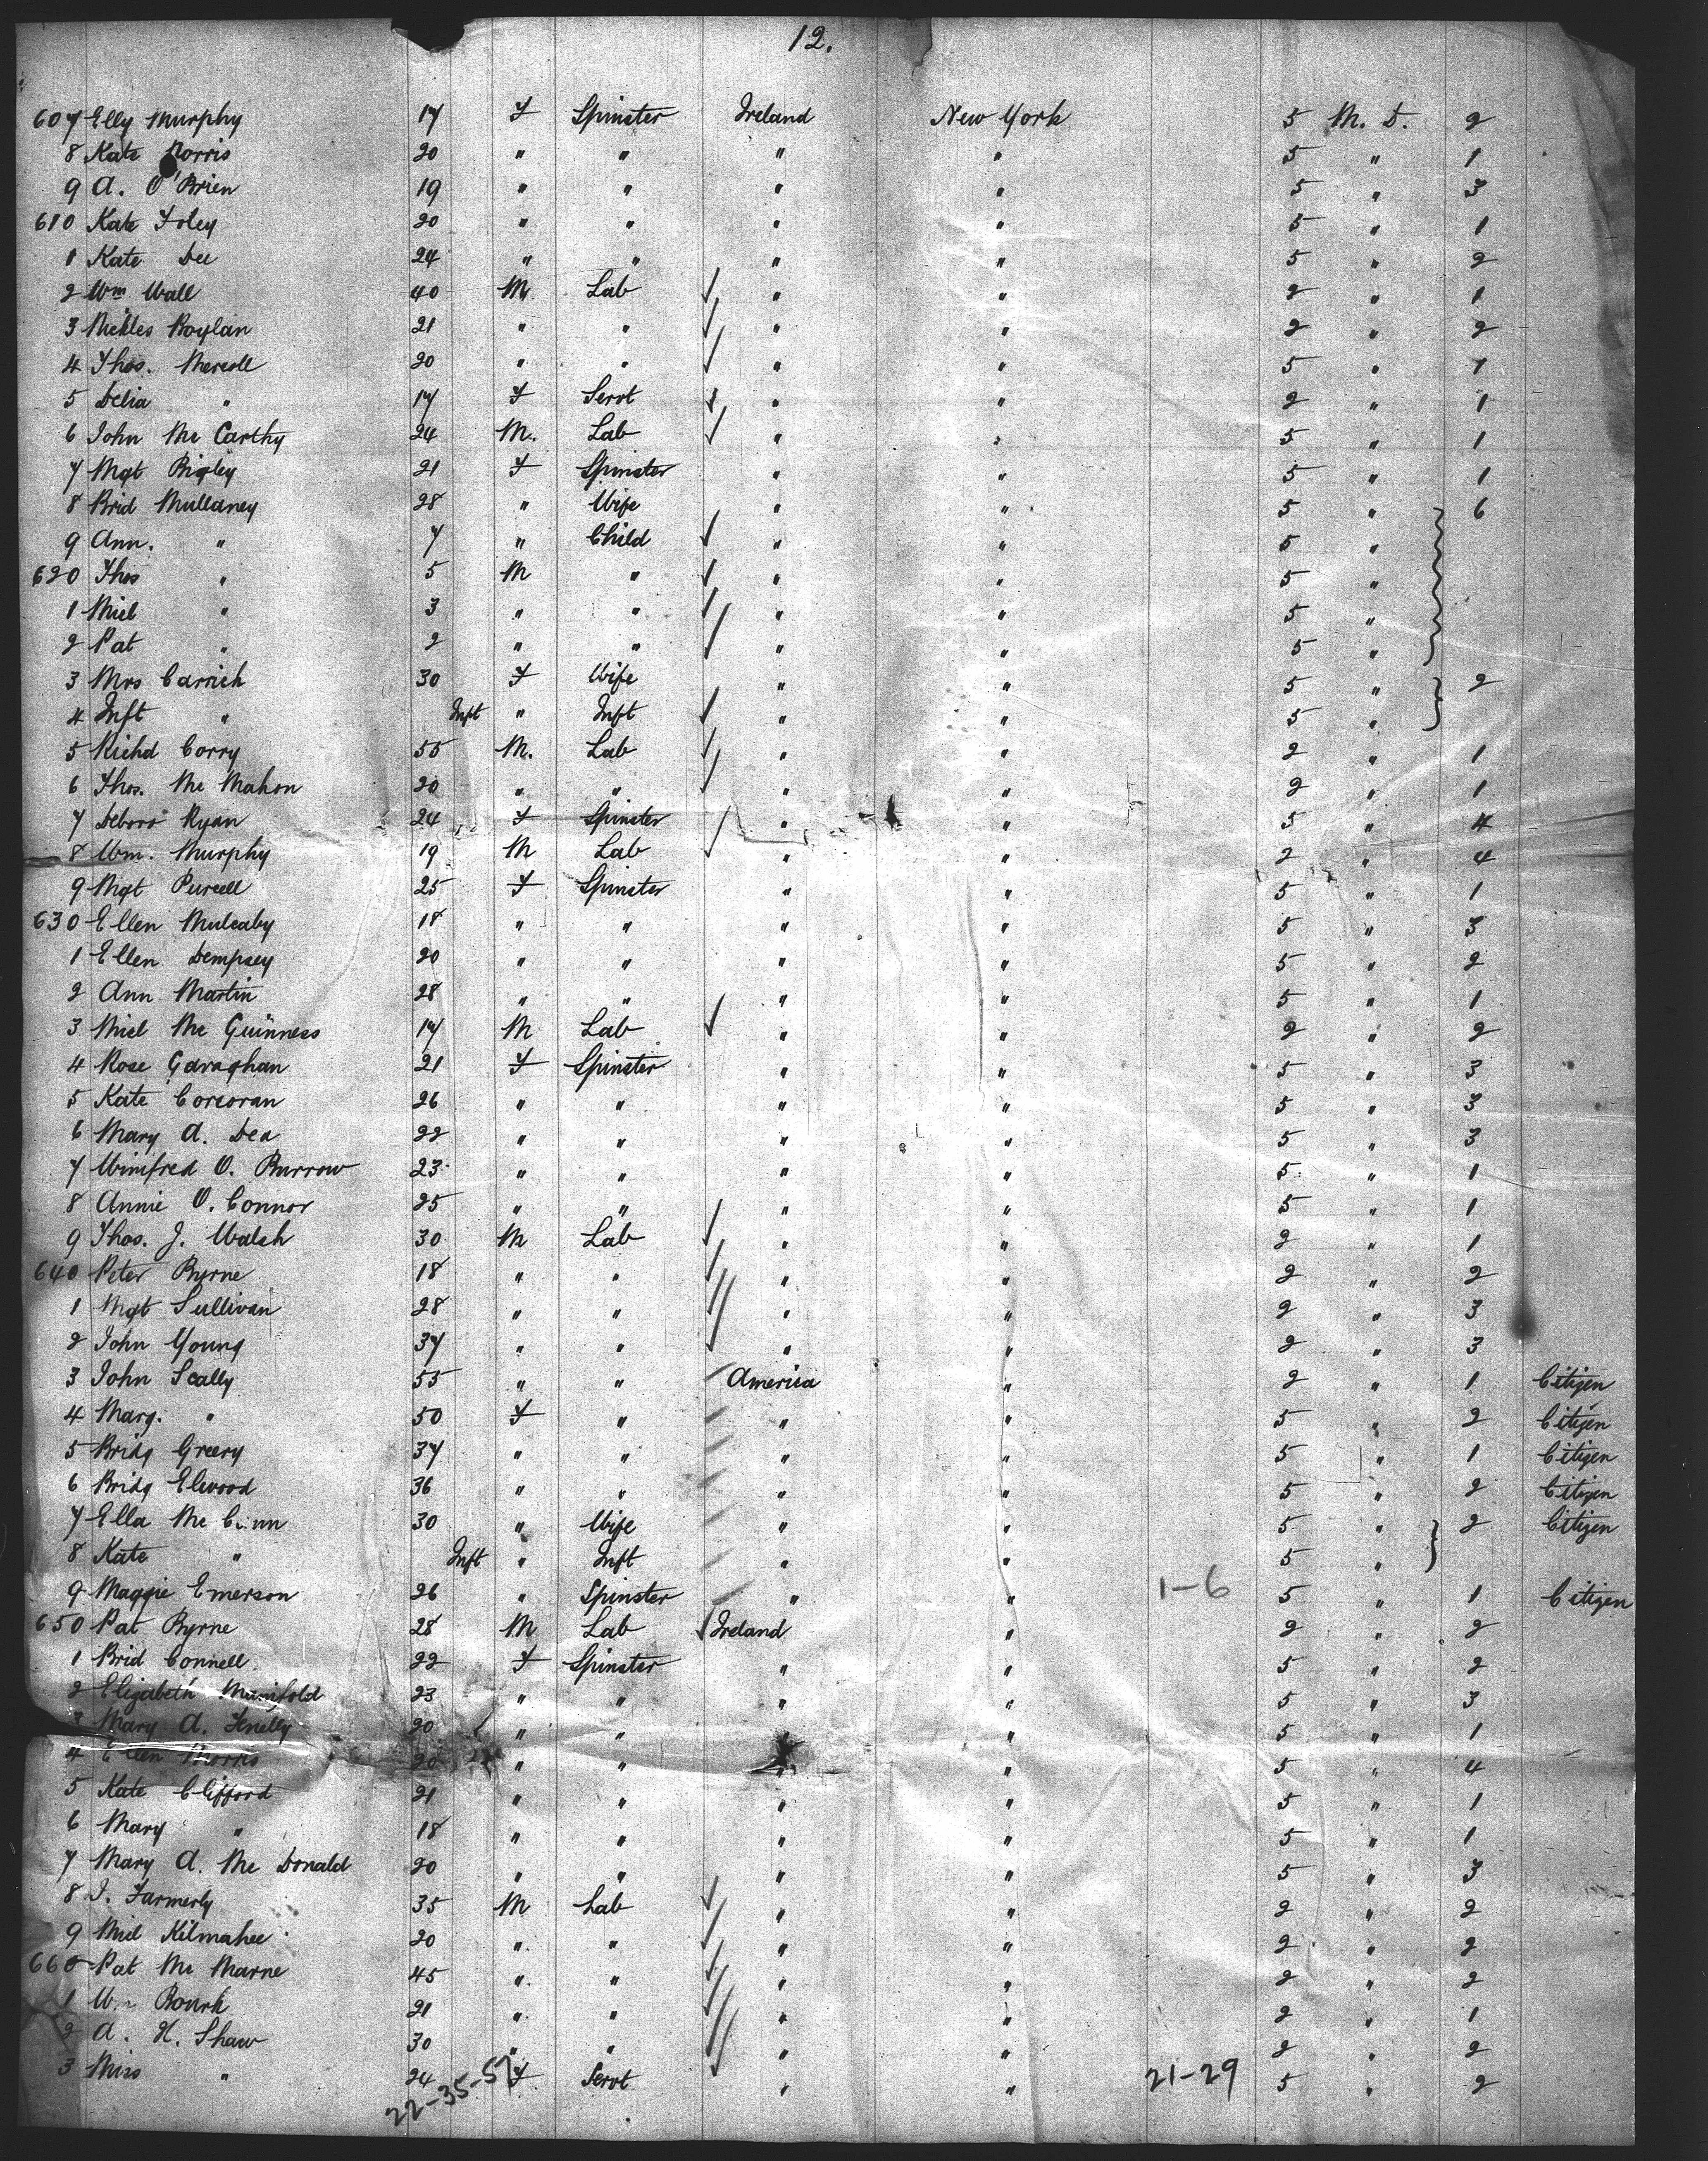 12.
607 Elly Murphy 17 F Spinster Ireland New York 5 M. D. 2
8 Kate Norris 20 " " " " 5 " 1
9 A. O'Brien 19 " " " " 5 " 3
610 Kate Foley 20 " " " " 5 " 1
1 Kate Dee 24 " " " " 5 " 2
2 Wm Wall 40 M. Lab ✓ " " 2 " 1
3 Nickles Boylan 21 " " ✓ " " 2 " 2
4 Thos. Mercell 20 " " ✓ " " 5 " 1
5 Delia " 17 F Servt ✓ " " 2 " 1
6 John Mc Carthy 24 M. Lab ✓ " " 5 " 1
7 Mgt Bigley 21 F Spinster " " 5 " 1
8 Brid Mullaney 28 " Wife " " 5 " 6
9 Ann. " 7 " Child ✓ " " 5 "
620 Thos " 5 M " ✓ " " 5 "
1 Micl " 3 " " ✓ " " 5 "
2 Pat " 2 " " ✓ " " 5 "
3 Mrs Carrich 30 F Wife " " 5 " 2
4 Inft " Inft " Inft ✓ " " 5 "
5 Richd Corry 55 M. Lab ✓ " " 2 " 1
6 Thos. Mc Mahon 20 " " ✓ " " 2 " 1
7 Deboro Ryan 24 F Spinster " " 5 " 4
8 Wm. Murphy 19 M Lab ✓ " " 2 " 4
9 Mgt Purcell 25 F Spinster " " 5 " 1
630 Ellen Mulcahy 18 " " " " 5 " 3
1 Ellen Dempsey 20 " " " " 5 " 2
2 Ann Martin 28 " " " " 5 " 1
3 Micl Mc Guinness 17 M Lab ✓ " " 2 " 2
4 Rose Garaghan 21 F Spinster " " 5 " 3
5 Kate Corcoran 26 " " " " 5 " 3
6 Mary A. Dea 22 " " " " 5 " 3
7 Winifred O. Burrow 23 " " " " 5 " 1
8 Annie O. Connor 25 " " " " 5 " 1
9 Thos. J. Walsh 30 M Lab ✓ " " 2 " 1
640 Peter Byrne 18 " " ✓ " " 2 " 2
1 Mgt Sullivan 28 " " ✓ " " 2 " 3
2 John Young 37 " " ✓ " " 2 " 3
3 John Scally 55 " " America " 2 " 1 Citizen
4 Marg. " 50 F " " " 5 " 2 Citizen
5 Bridg Greery 37 " " " " 5 " 1 Citizen
6 Bridg Elwood 36 " " " " 5 " 2 Citizen
7 Ella Mc 30 " Wife " " 5 " 2 Citizen
8 Kate " Inft " Inft " " 5 "
9 Maggie Emerson 26 " Spinster " " 1-6 5 " 1 Citizen
650 Pat Byrne 28 M Lab ✓ Ireland " 2 " 2
1 Brid Connell 22 F Spinster " " 5 " 2
2 Elizabeth Manifold 23 " " " " 5 " 3
3 Mary A. Fenelly 20 " " " " 5 " 1
4 Ellen Morris 20 " " " " 5 " 4
5 Kate Clifford 21 " " " " 5 " 1
6 Mary " 18 " " " " 5 " 1
7 Mary A. Mc Donald 20 " " " " 5 " 3
8 J. Farmerly 35 M Lab ✓ " " 2 " 2
9 Micl Kilmahee 20 " " ✓ " " 2 " 2
660 Pat Mc Marne 45 " " ✓ " " 2 " 2
1 Wm Rourk 21 " " ✓ " " 2 " 1
2 A. H. Shaw 30 " " ✓ " " 2 " 2
3 Miss " 24 F Servt ✓ " " 21-29 5 " 2
22-35-57